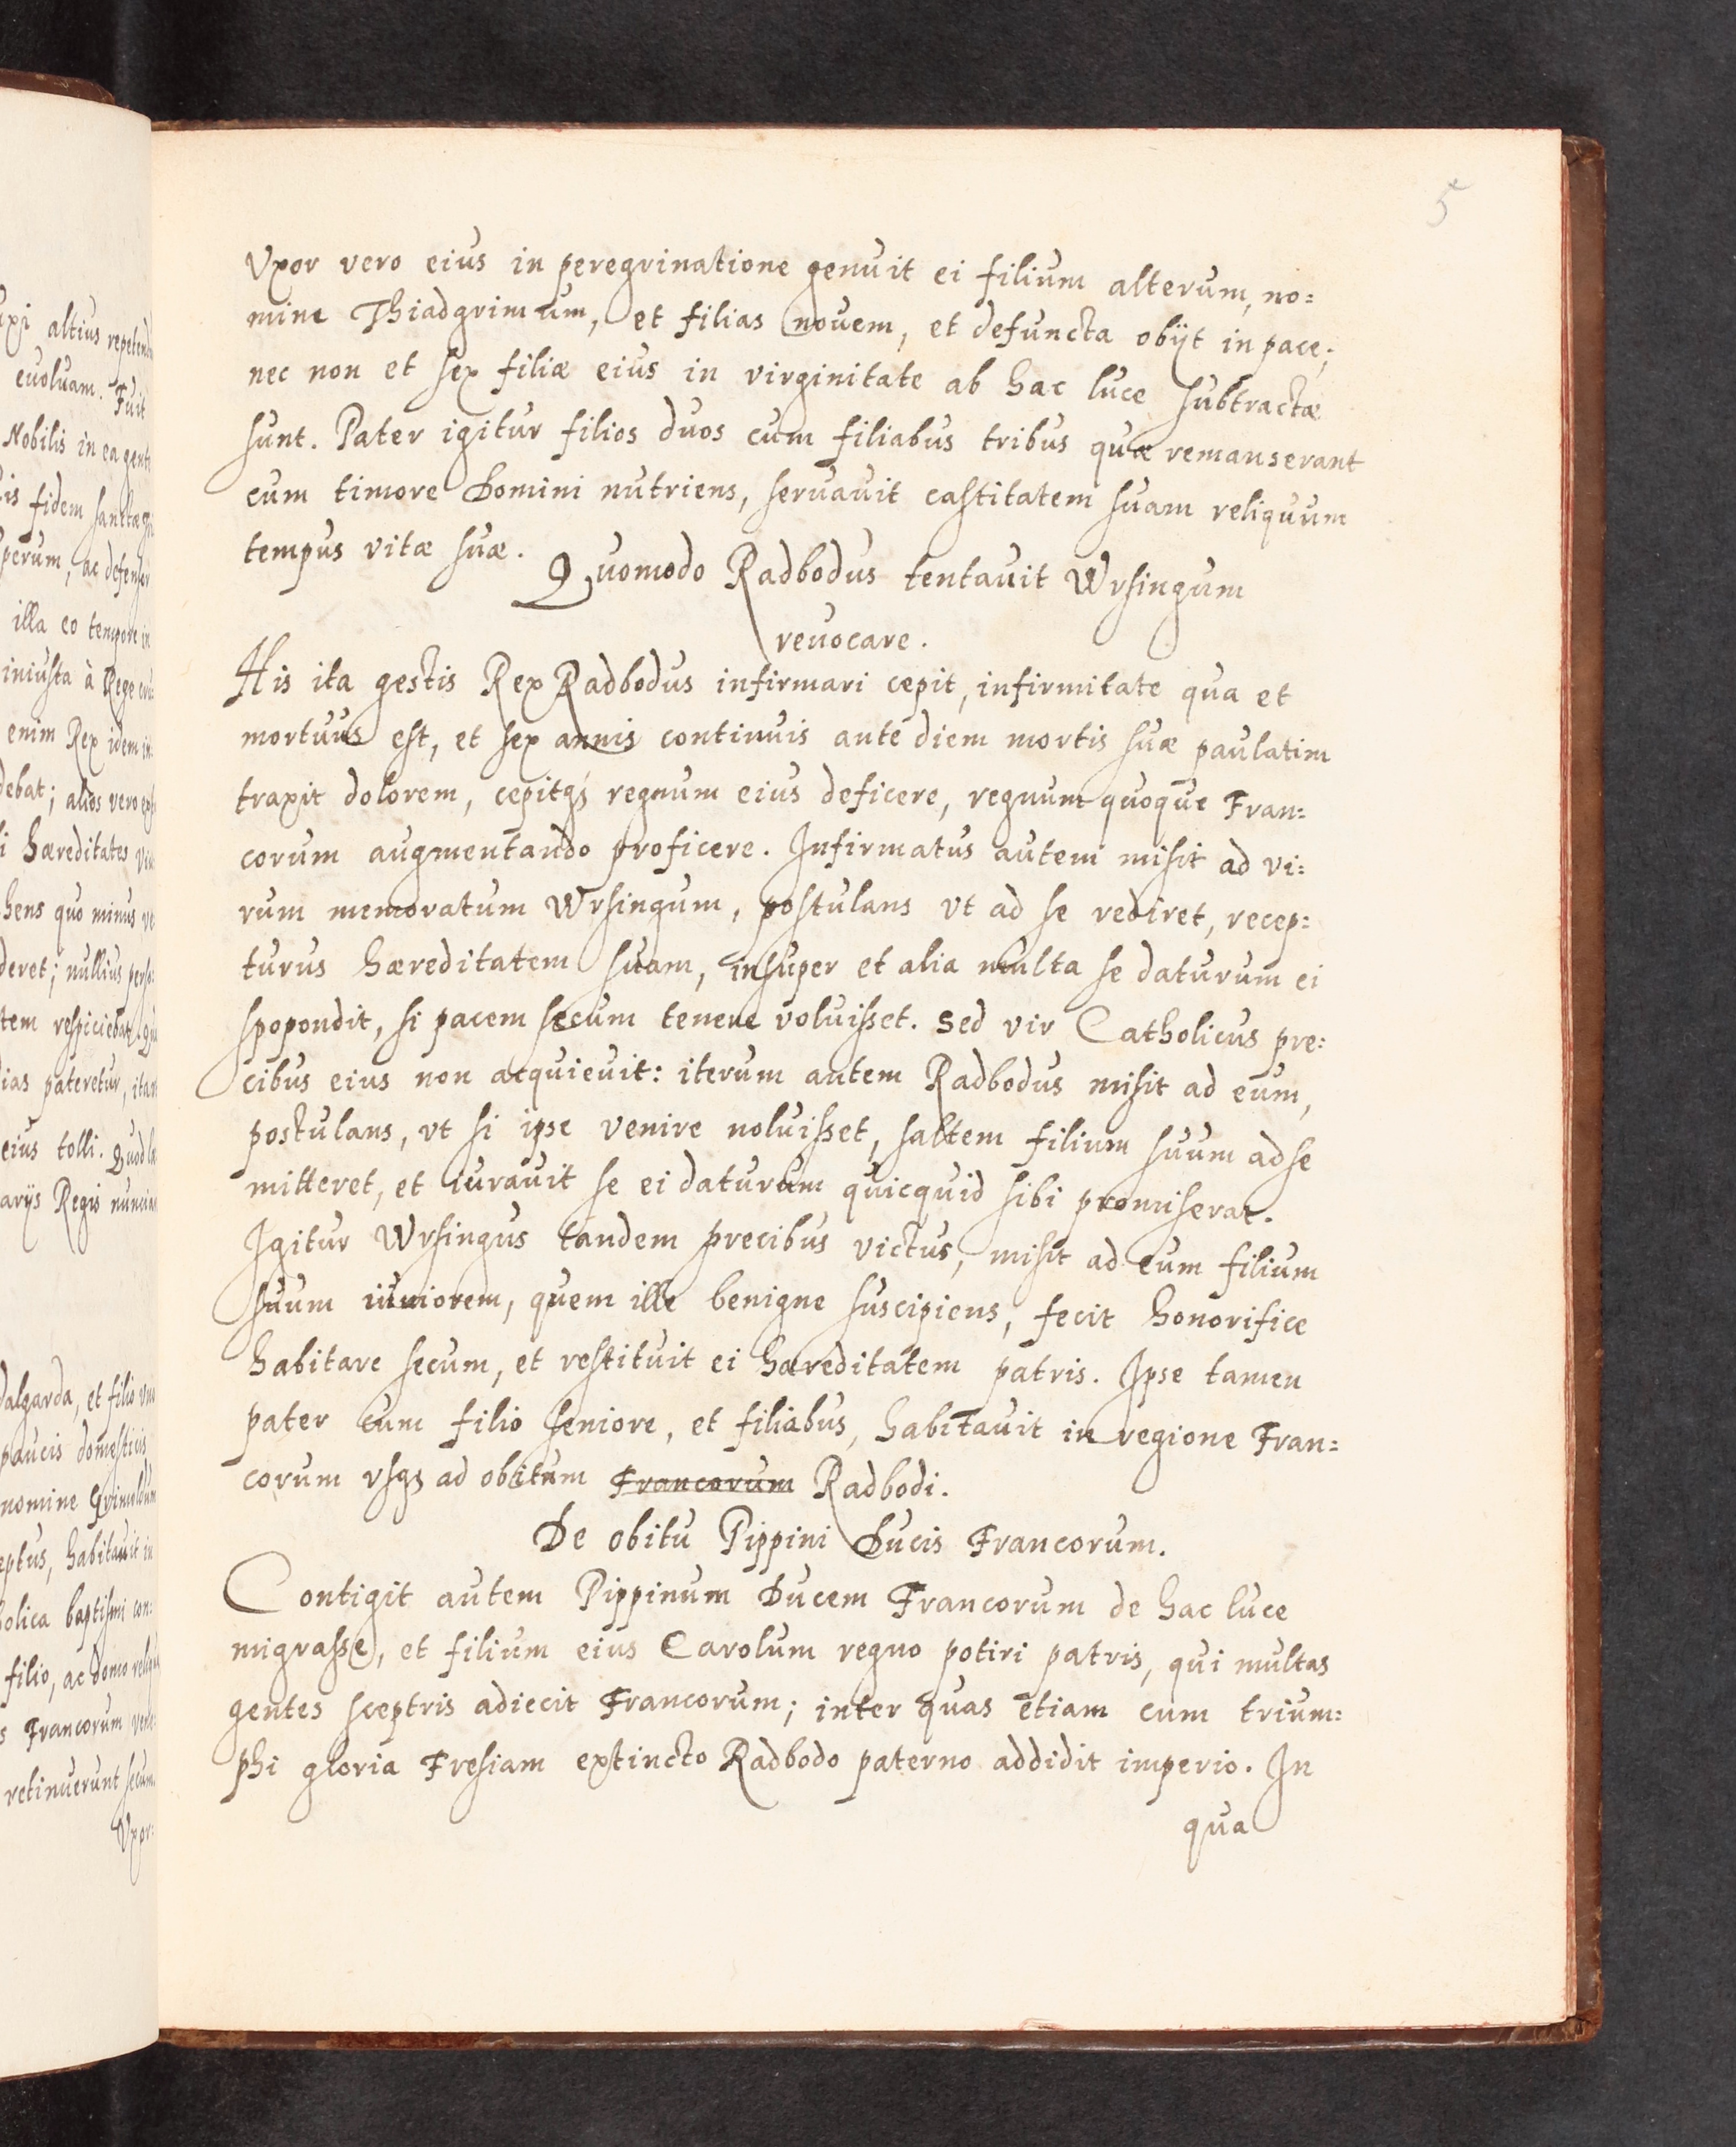 5
Vxor vero eius in peregrinatione genuit ei filium alterum, no=
mine Thiadgrimum, et filias novem, et defuncta obijt in pace;
nec non et sex filiæ eius in virginitate ab hac luce subtractæ
sunt. Pater igitur filios duos cum filiabus tribus quæ remanserant
cum timore Domini nutriens, seruauit castitatem suam reliquum
tempus vitæ suæ.
Quomodo Radbodus tentauit Wrsingum
reuocare.
His ita gestis Rex Radbodus infirmari cepit, infirmitate qua et
mortuus est, et sex annis continuis ante diem mortis suæ paulatim
traxit dolorem, cepitqꝫ regnum eius deficere, regnum quoque Fran=
corum augmentando proficere. Infirmatus autem misit ad vi=
rum memoratum Wrsingum, postulans vt ad se rediret, recep=
turus hæreditatem suam, insuper et alia multa se daturum ei
spopondit, si pacem secum tenere voluisset. Sed vir Catholicus pre=
cibus eius non acquieuit: iterum autem Radbodus misit ad eum,
postulans, vt si ipse venire noluisset, saltem filium suum ad se
mitteret, et iurauit se ei daturum quicquid sibi promiserat.
Igitur Wrsingus tandem precibus victus, misit ad eum filium
suum iuniorem, quem ille benigne suscipiens, fecit honorifice
habitare secum, et restituit ei hæreditatem patris. Ipse tamen
pater cum filio seniore, et filiabus, habitauit in regione Fran=
corum vsqꝫ ad obitum Francorum Radbodi.
De obitu Pippini Ducis Francorum.
Contigit autem Pippinum Ducem Francorum de hac luce
migrasse, et filium eius Carolum regno potiri patris, qui multas
gentes sceptris adiecit Francorum; inter quas etiam cum trium=
phi gloria Fresiam extincto Radbodo paterno addidit imperio. In
qua
altius
euoluam. Fuit
Nobilis in ea
fidem
illa eo tempore in
iniusta à Rege
enim Rex idem
alios vero
hæreditates
quo minus
nullius
pateretur
eius tolli.
Regis
et filio
paucis domesticis
nomine
habitauit in
baptismi con=
filio, ac domo
Francorum
retinuerunt secum.
Vxor: